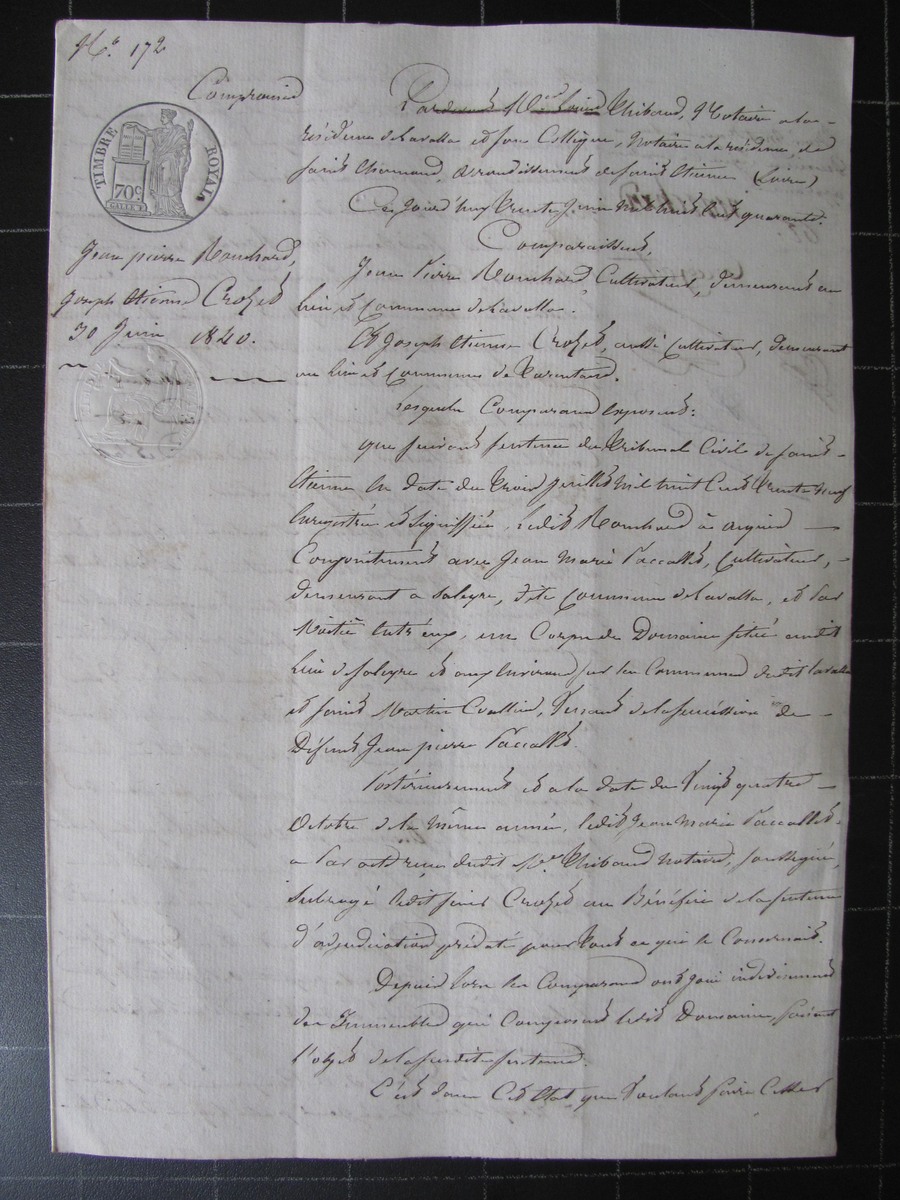 N.o 172
Compromis
TIMBRE ROYAL
70c
Jean pierre Bouchard,
joseph Etienne Crozet
30 Juin 1840.
Pardevant Me Louis Thibaud, Notaire a la
résidence de Lavalla et son Collègue, Notaire a la résidence de
saint Chamond, arrondissement de saint Etienne (Loire)
Ce jourd'huy trente Juin mil huit cent quarante.
Comparaissent,
Jean Pierre Cultivateur, demeurant au
lieu et commune de Lavalla.
Et joseph Etienne Crozet, aussi Cultivateur, demeurant
au lieu et Commune de
Lesquels Comparans exposent:
que suivant sentence du tribunal Civil de saint
Etienne en date du trois juillet mil huit Cent trente neuf
Enregistrée et signiffiée, ledit a acquis
Conjointement avec Jean Marie Paccallet, Cultivateur,
demeurant a Saleyre, dite Commune de Lavalla, et Par
Moitié Entr'eux, un Corps de Domaine situé audit
lieu de Saleyre et aux Environs sur les Communes dudit Lavalla
et saint Martin Coallieu, Venant de la succéssion de
Défunt Jean pierre Paccallet.
Postérieurement et a la date du Vingt quatre
Octobre de la même année, ledit Jean Marie Paccallet
a Par acte reçu dudit Me Thibaud notaire, soussigné,
subrogé ledit sieur Crozet au Bénéfice de la sentence
d'adjudication prédaté pour tout ce qui le Concernait.
Depuis lors les Comparans ont joui indivisement
des Immeubles qui Composent ledit Domaine, faisant
l'objet de la susdite sentence.
C'est dans Cet Etat, que Voulant faire Cesser